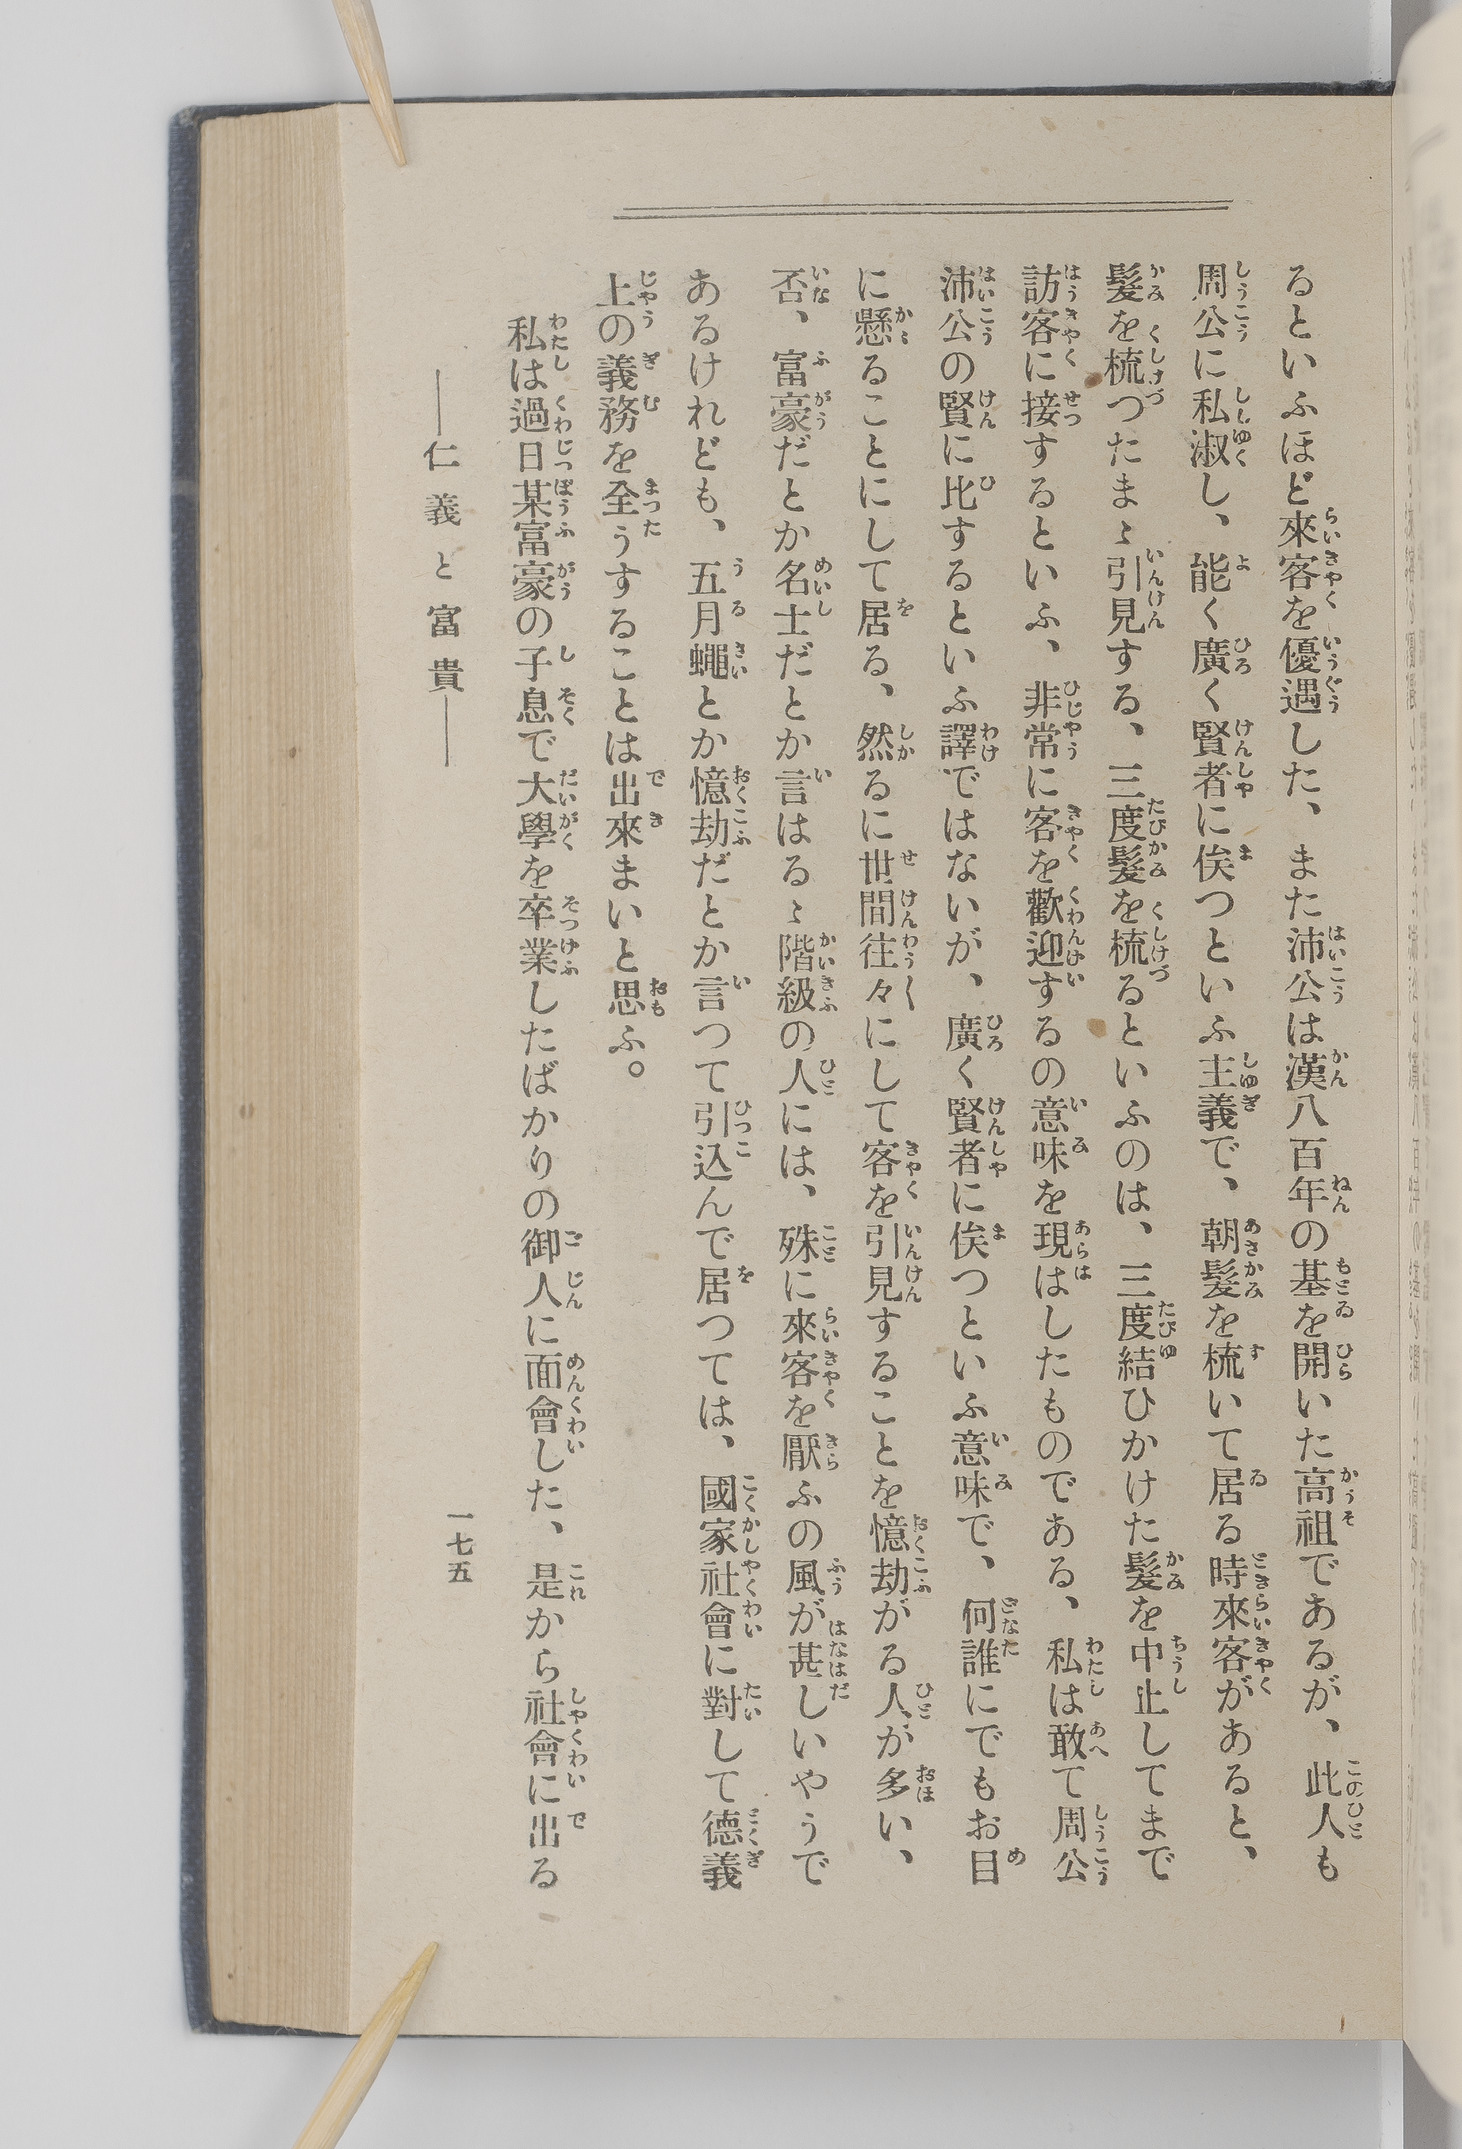 るといふほど來客を優遇した、また沛公は漢八百年の基を開いた高祖であるが、此人も
周公に私淑し、能く廣く賢者に俟つといふ主義で、朝髮を梳いて居る時來客があると、
髮を梳つたまゝ引見する、三度髮を梳るといふのは、三度結ひかけた髮を中止してまで
訪客に接するといふ、非常に客を歡迎するの意味を現はしたものである、私は敢て周公
沛公の賢に比するといふ譯ではないが、廣く賢者に俟つといふ意味で、何誰にでもお目
に懸ることにして居る、然るに世間往々にして客を引見することを憶劫がる人が多い、
否、富豪だとか名士だとか言はるゝ階級の人には、殊に來客を厭ふの風が甚しいやうで
あるけれども、五月蠅とか憶劫だとか言つて引込んで居つては、國家社會に對して德義
上の義務を全うすることは出來まいと思ふ。
私は過日某富豪の子息で大學を卒業したばかりの御人に面會した、是から社會に出る
──仁義と富貴──
一七五